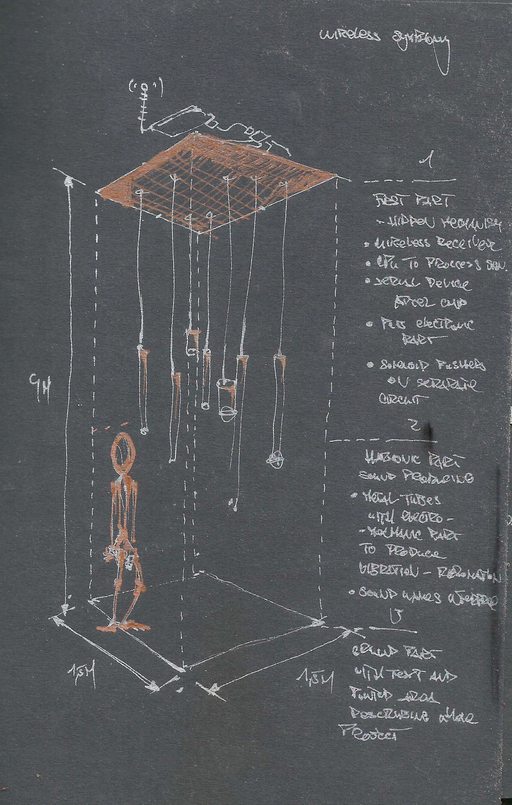 WIRELESS SYMPHONY
1
FIRST PART
- HIDDEN MECHANISM
• WIRELESS RECEIVER
• CPU TO PROCESS
• SERIAL DEVICE
ATMEL CHIP
• PCB ELECTRONIC
PART
• SOLENOID PUSHERS
ON SEPARATE
CIRCUIT
2
HARMONIC PART
SOUND PRODUCING
• METAL TUBES
WITH ELECTRO-
-MECHANIC PART
TO PRODUCE
VIBRATION - RESONATION
• SOUND WAVES
3
GROUND PART
WITH TEXT AND
PRINTED AREA
DESCRIBING WHOLE
PROJECT
4M
1,5M
1,5M